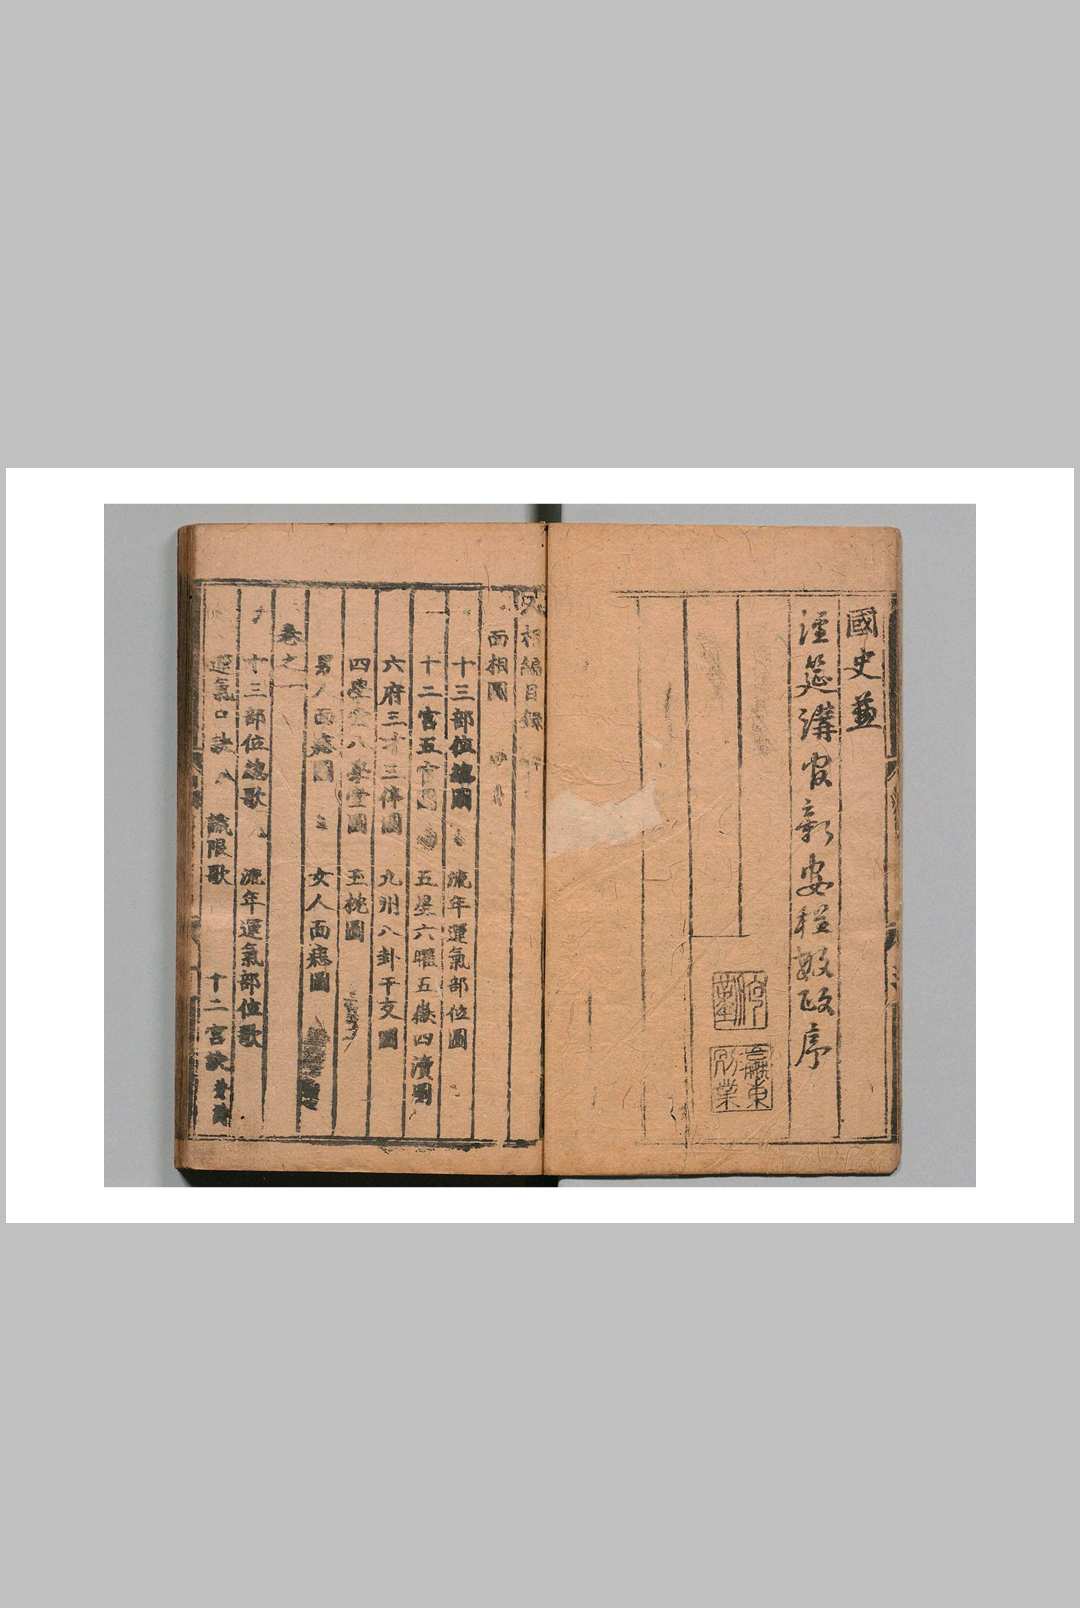 國史兼
經筵講官新安程敏政序
相編目錄
面相圖
十三部位總圖 流年運氣部位圖
十二宮五官圖 五星六曜五嶽四瀆圖
六府三才三停圖 九州八卦干支圖
四學堂八學堂圖 玉枕圖
男人面痣圖 女人面痣圖
卷之一
十三部位總歌 流年運氣部位歌
運氣口訣 識限歌 十二宮訣